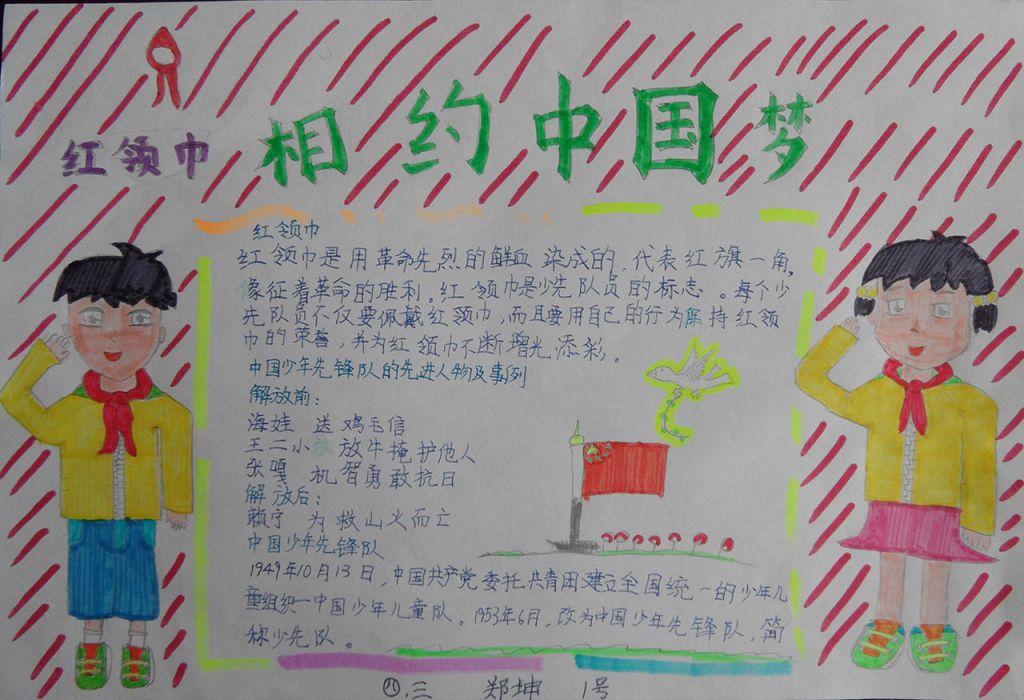 红领巾 相约中国梦
红领巾
红领巾是用革命先烈的鲜血染成的,代表红旗一角,
象征着革命的胜利。红领巾是少先队员的标志。每个少
先队员不仅要佩戴红领巾,而且要用自己的行为保持红领
巾的荣誉,并为红领巾不断增光添彩。
中国少年先锋队的先进人物及事例
解放前:
海娃 送鸡毛信
王二小 放牛掩护他人
张嘎 机智勇敢抗日
解放后:
赖宁 为救山火而亡
中国少年先锋队
1949年10月13日,中国共产党委托共青团建立全国统一的少年儿
童组织—中国少年儿童队。1953年6月,改为中国少年先锋队,简
称少先队。
八.三 郑坤 1号